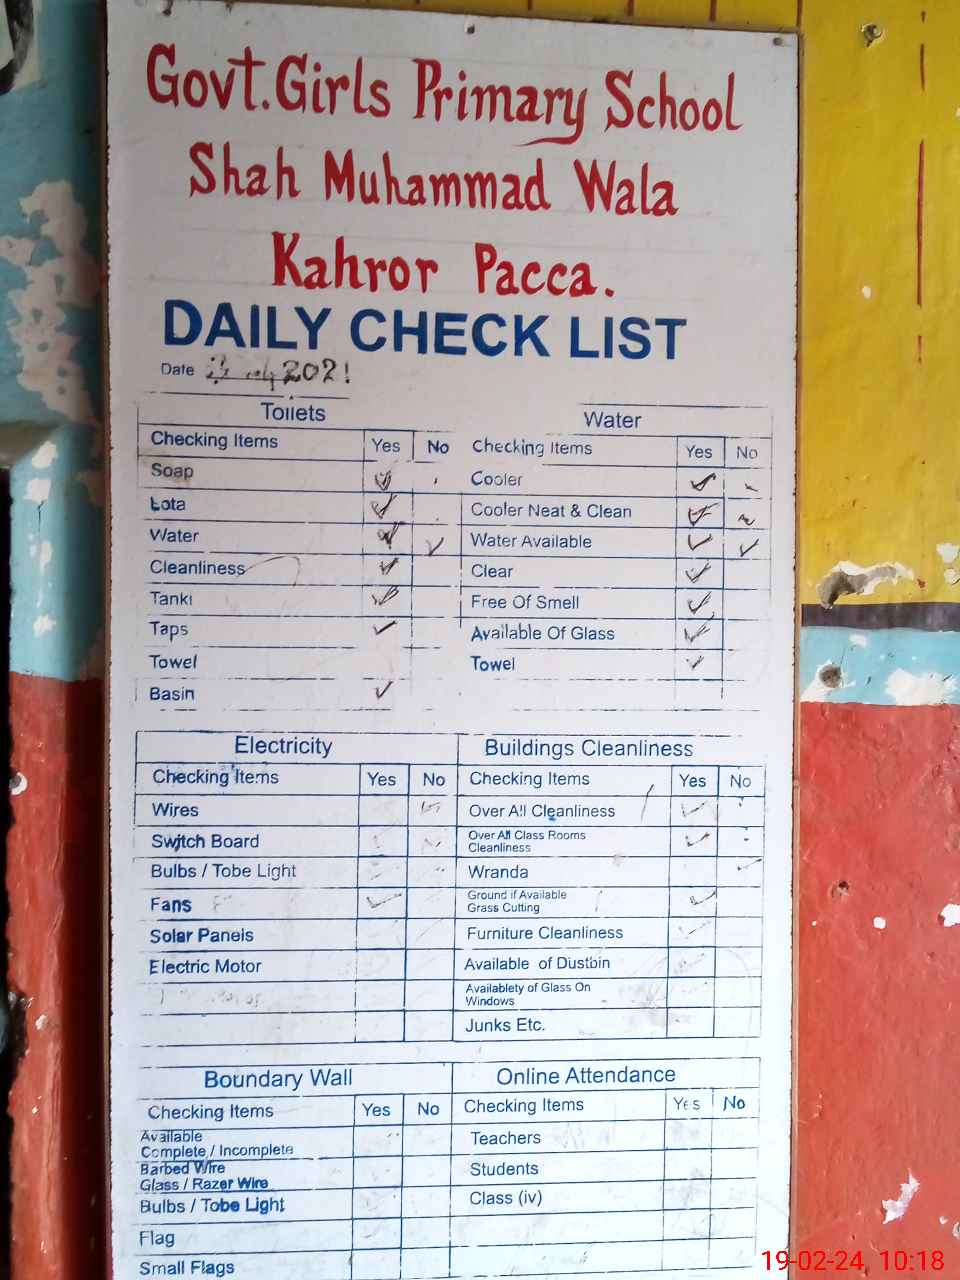 Govt. Girls Primary School
Shah Muhammad Wala
Kahror Pacca.
DAILY CHECK LIST
Date 2021
Toilets
Checking Items Yes No
Soap
Lota
Water
Cleanliness
Tanki
Taps
Towel
Basin
Water
Checking Items Yes No
Cooler
Cooler Neat & Clean
Water Available
Clear
Free Of Smell
Available Of Glass
Towel
Electricity
Checking Items Yes No
Wires
Switch Board
Bulbs / Tobe Light
Fans
Solar Panels
Electric Motor
Buildings Cleanliness
Checking Items Yes No
Over All Cleanliness
Over All Class Rooms
Cleanliness
Wranda
Ground if Available
Grass Cutting
Furniture Cleanliness
Available of Dustbin
Availablety of Glass On
Windows
Junks Etc.
Boundary Wall
Checking Items Yes No
Available
Complete / Incomplete
Barbed Wire
Glass / Razer Wire
Bulbs / Tobe Light
Flag
Small Flags
Online Attendance
Checking Items Yes No
Teachers
Students
Class (iv)
19-02-24, 10:18